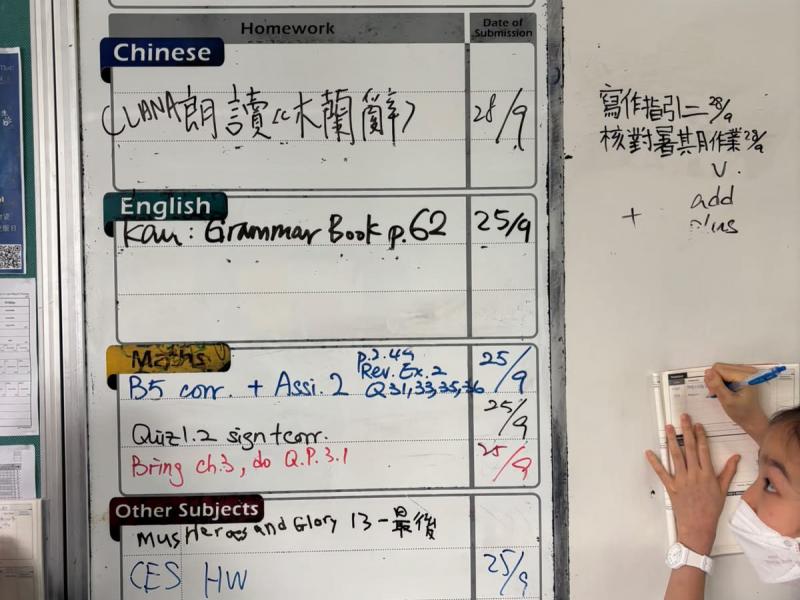 Homework
Date of Submission
Chinese
(LANA朗讀《木蘭辭》
28/9
English
Kau: Grammar Book p.62
25/9
Maths
B5 corr. + Assi. 2
p.2.49
Rev. Ex. 2
Q31,33,35,36
25/9
Quiz1.2 sign+corr.
25/9
Bring ch.3, do Q.P.3.1
25/9
Other Subjects
Mus Heroes and Glory 13-最後
CES HW
25/9
寫作指引二 28/9
核對暑期作業 28/9
V.
add
+
plus